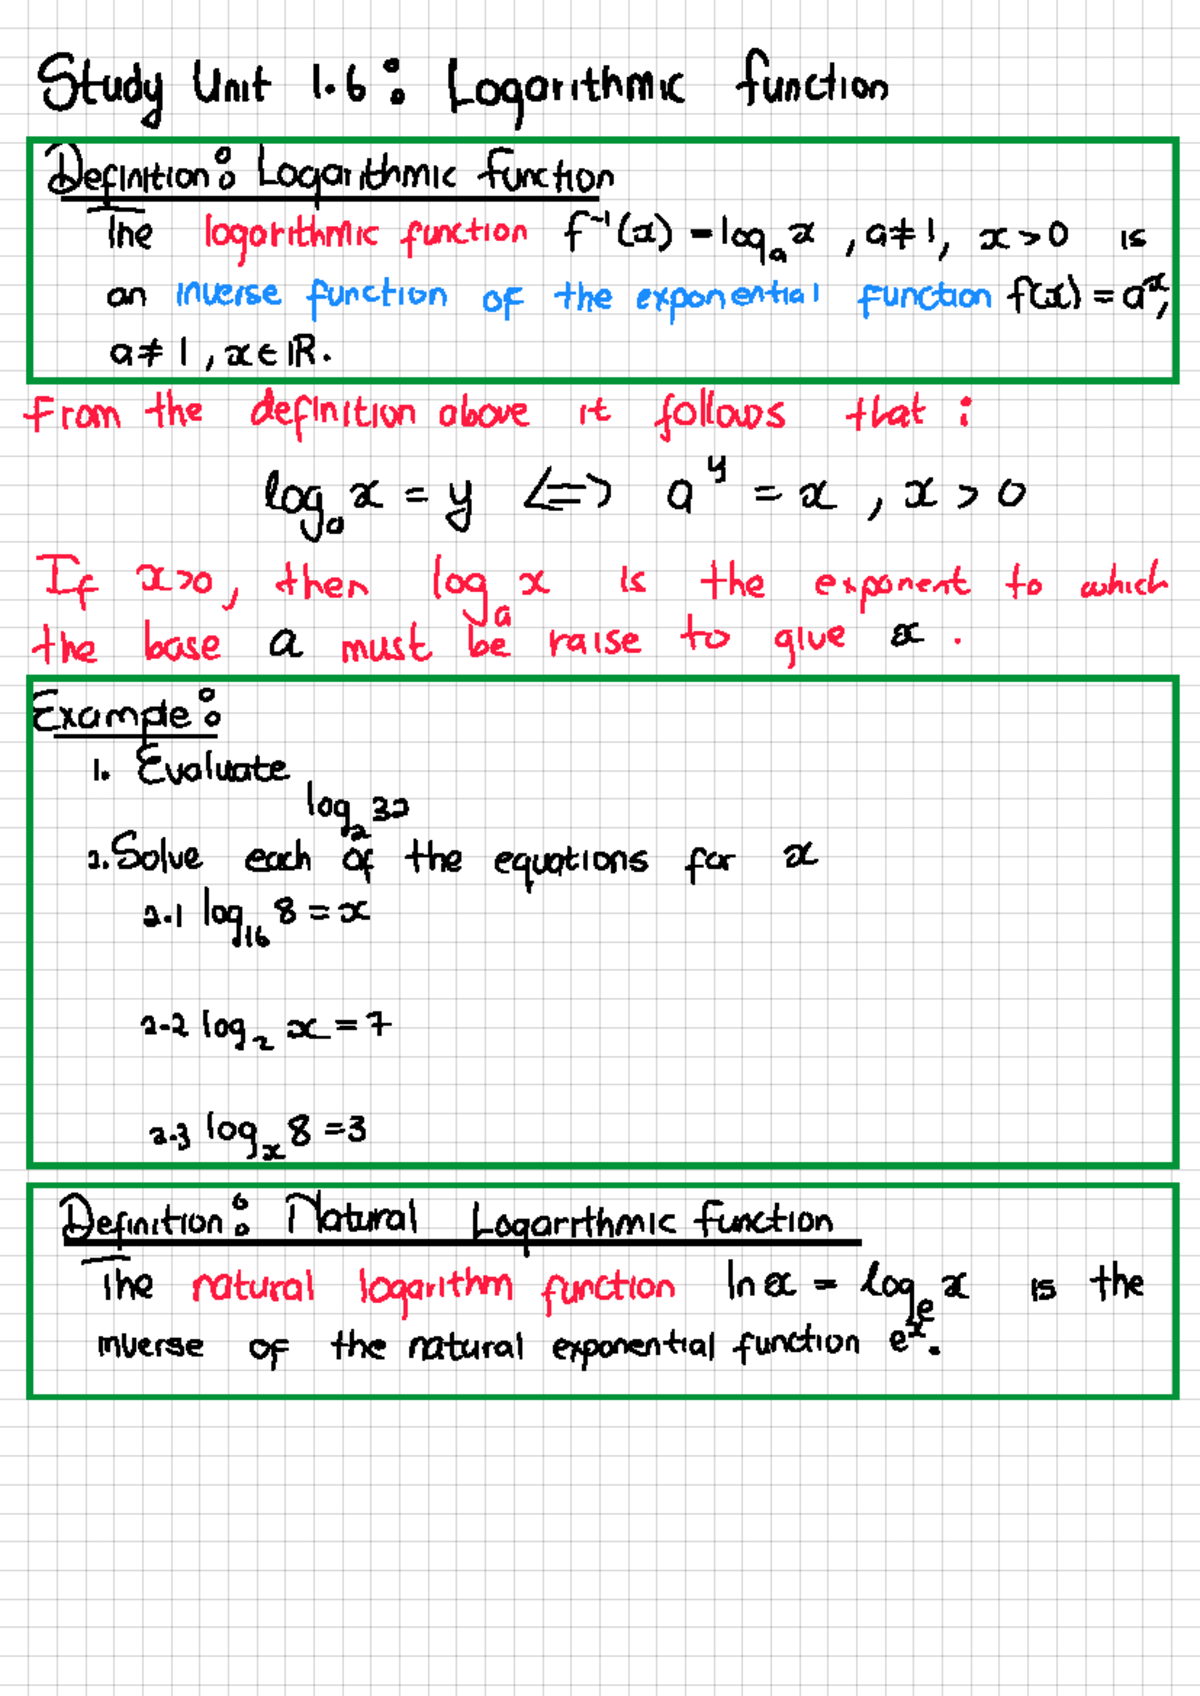 Study Unit 1.6: Logarithmic function
Definition: Logarithmic function
The logarithmic function f⁻¹(x) = logₐ x , a ≠ 1, x > 0 is
an inverse function of the exponential function f(x) = aˣ,
a ≠ 1 , x ∈ ℝ.
From the definition above it follows that :
logₐ x = y <=> a^y = x , x > 0
If x>0, then logₐ x is the exponent to which
the base a must be raise to give x .
Example:
1. Evaluate
log₂ 32
2. Solve each of the equations for x
2.1 log₁₆ 8 = x
2-2 log₂ x = 7
2.3 logₓ 8 = 3
Definition: Natural Logarithmic function
The natural logarithm function ln x = logₑ x is the
inverse of the natural exponential function eˣ.